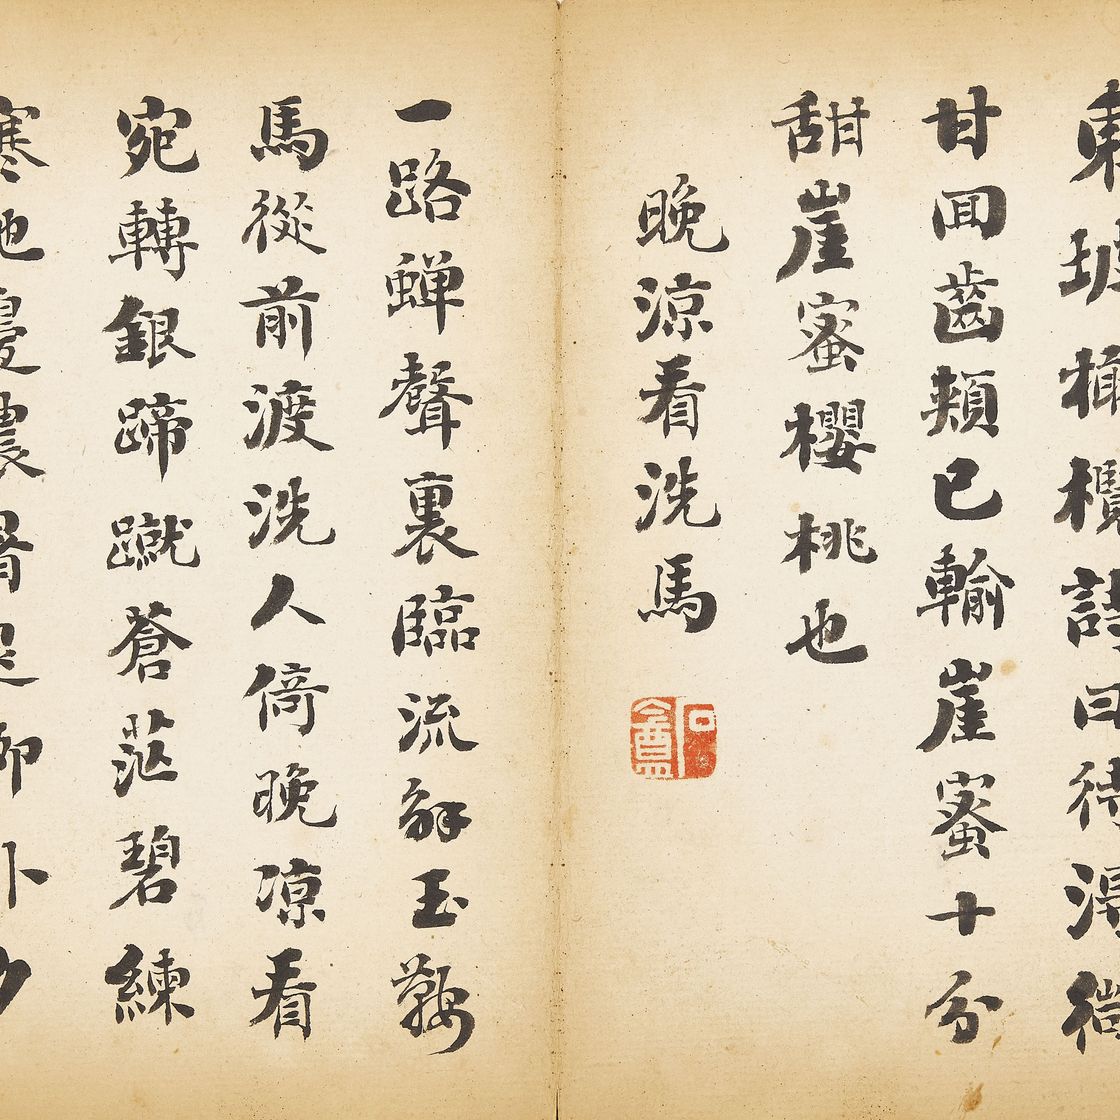 東坡橄欖詩曰待得微
甘回齒頰已輸崖蜜十分
甜崖蜜櫻桃也
晚涼看洗馬
一路蟬聲裏臨流解玉鞍
馬從前渡洗人倚晚涼看
宛轉銀蹄蹴蒼茫碧練
寒他